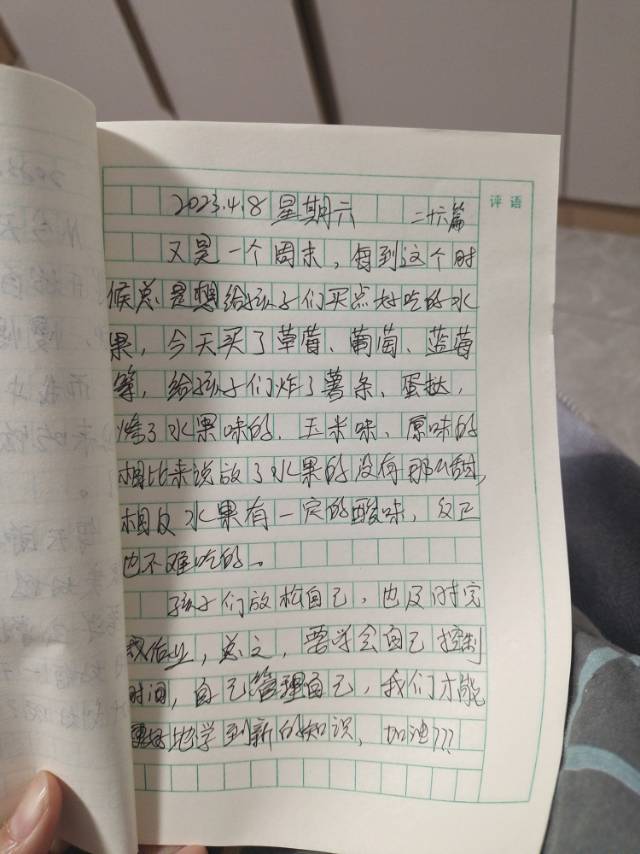 评语
2023.4.8 星期六 二十六篇
又是一个周末，每到这个时
候总是想给孩子们买点好吃的水
果，今天买了草莓、葡萄、蓝莓
等，给孩子们炸了薯条、蛋挞，
烤了水果味的、玉米味、原味的
相比来说放了水果的没有那么甜，
相反水果有一定的酸味，反正
也不难吃的。
孩子们放松自己，也及时完
成作业，总之，要学会自己控制
时间，自己管理自己，我们才能
更好地学到新的知识，加油！！！